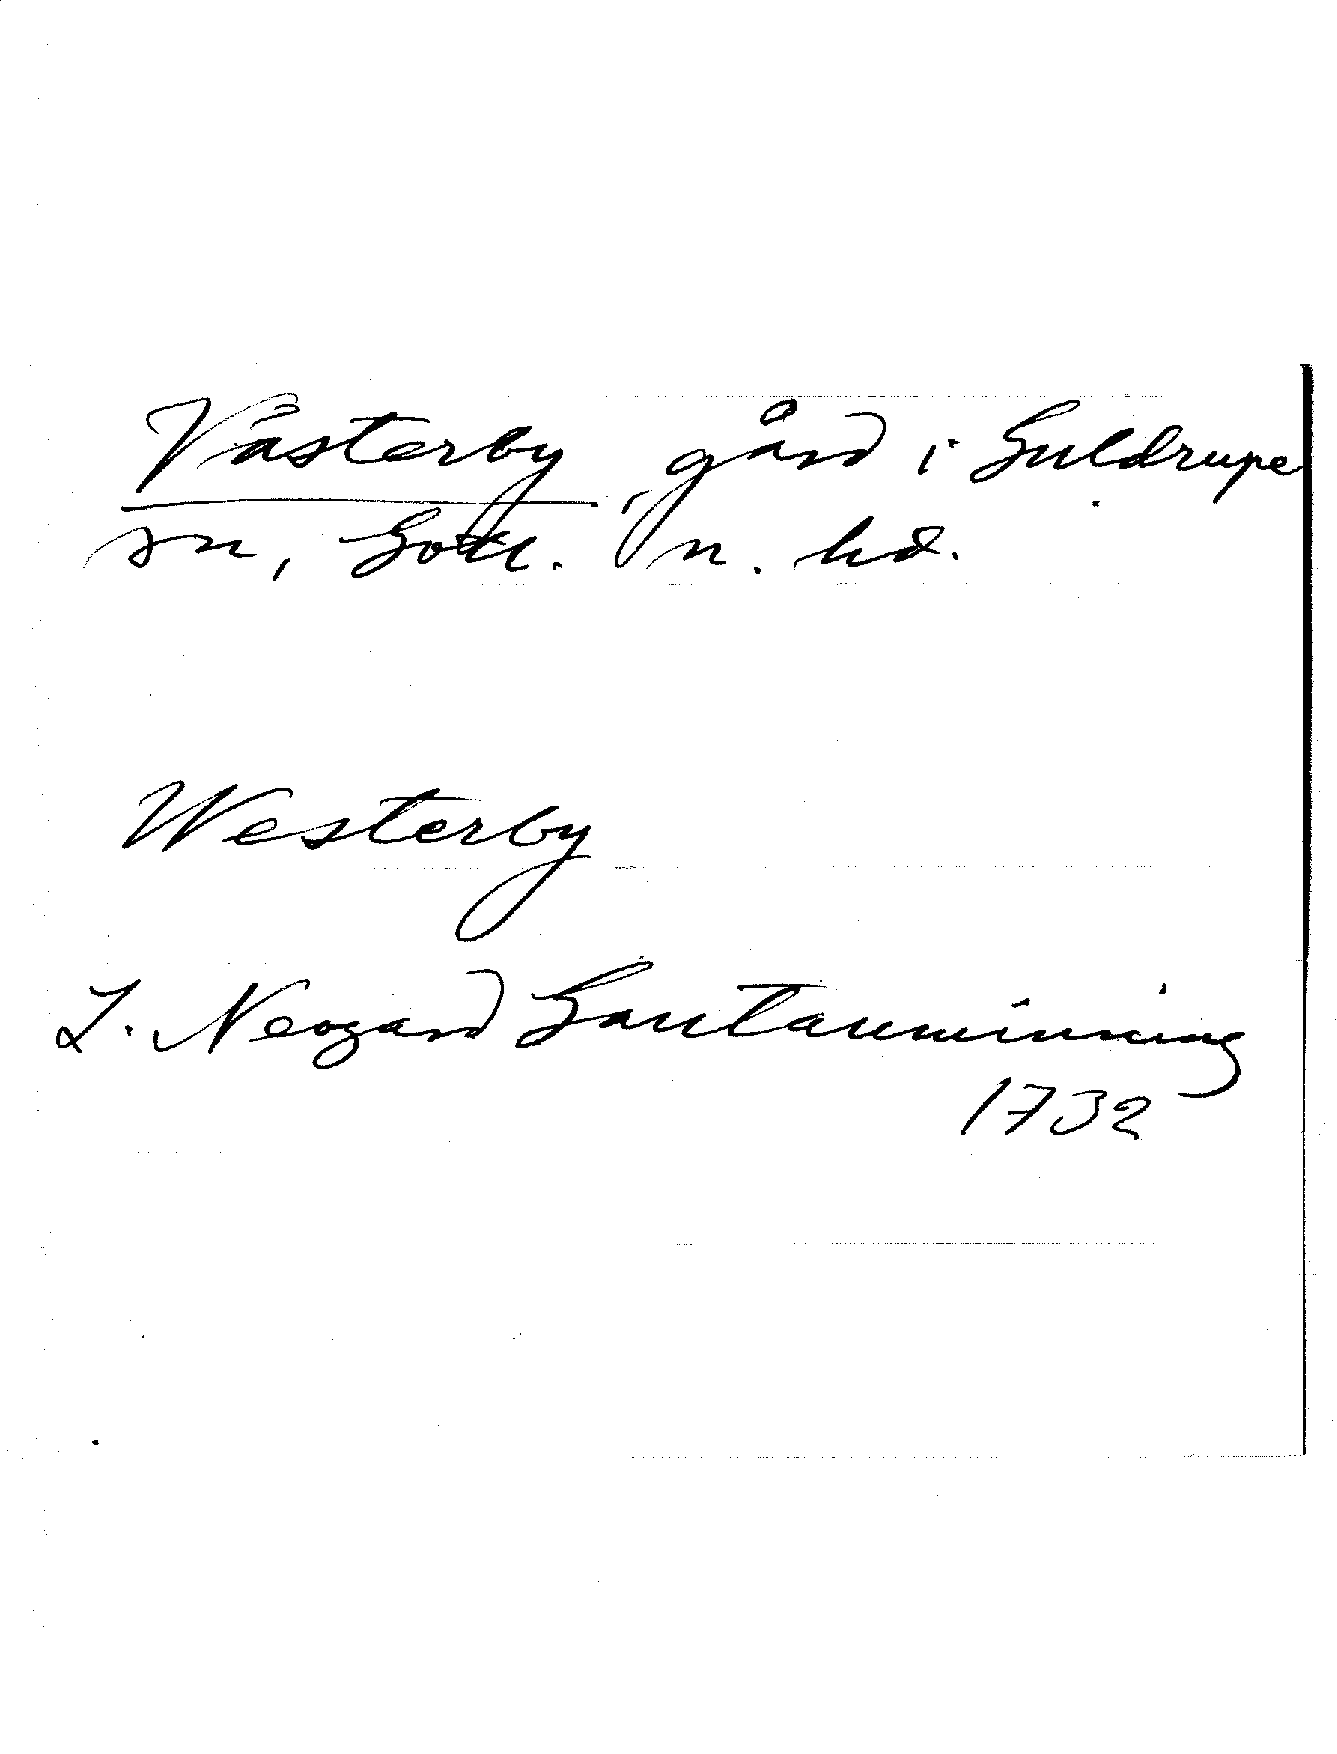 Västerby, gård i Guldrupe
sn, Gotl. n. hd.
Westerby
L. Neogard Gautauminning
1732